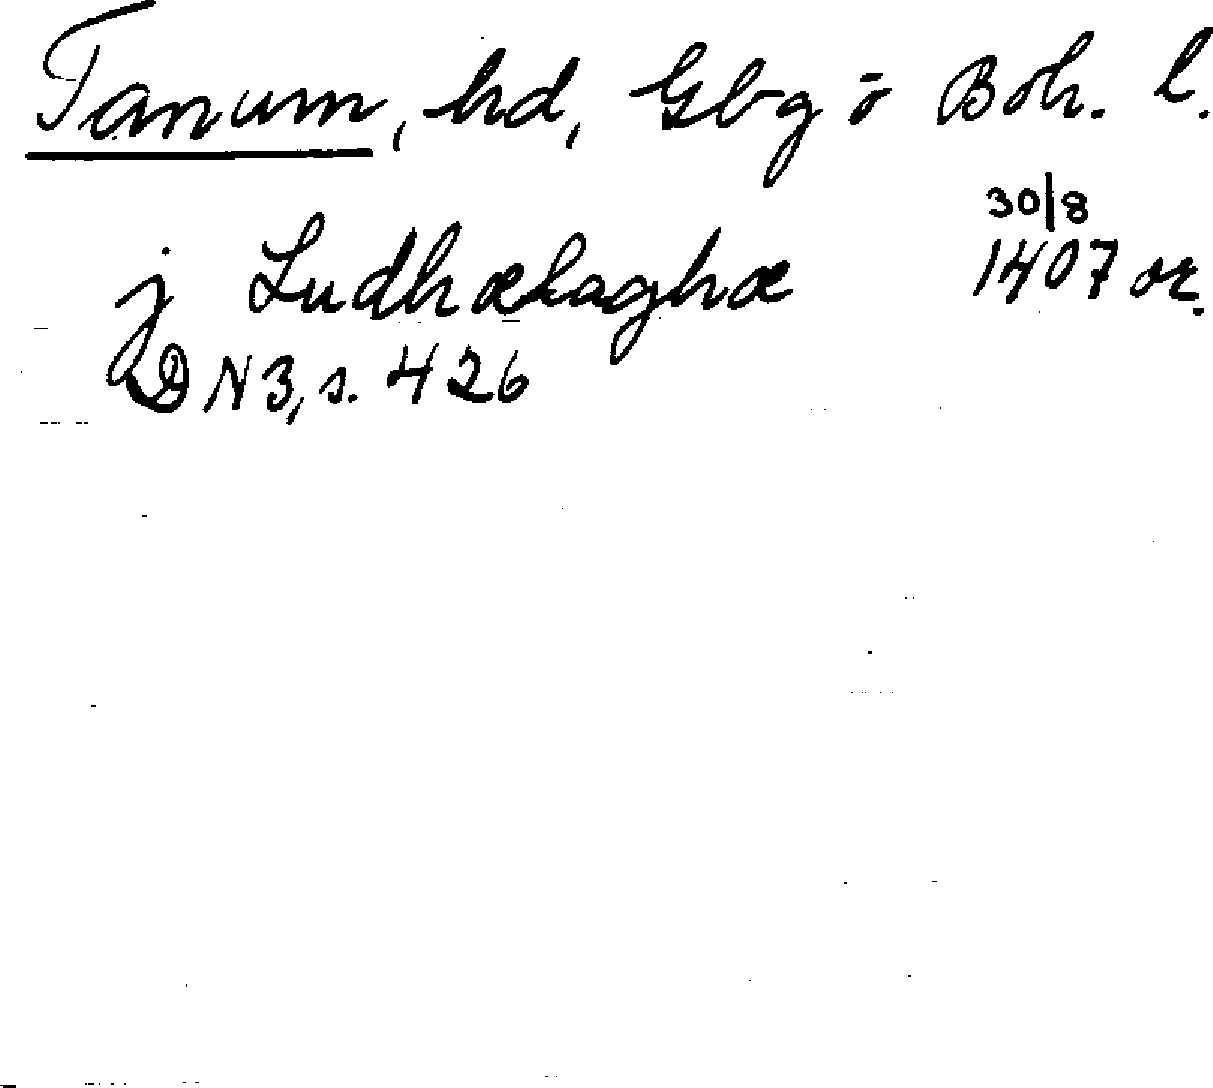 Tanum, hd, Gbg o Boh. l.
j Ludhælaghæ 30/8 1407 or.
DN 3, s. 426